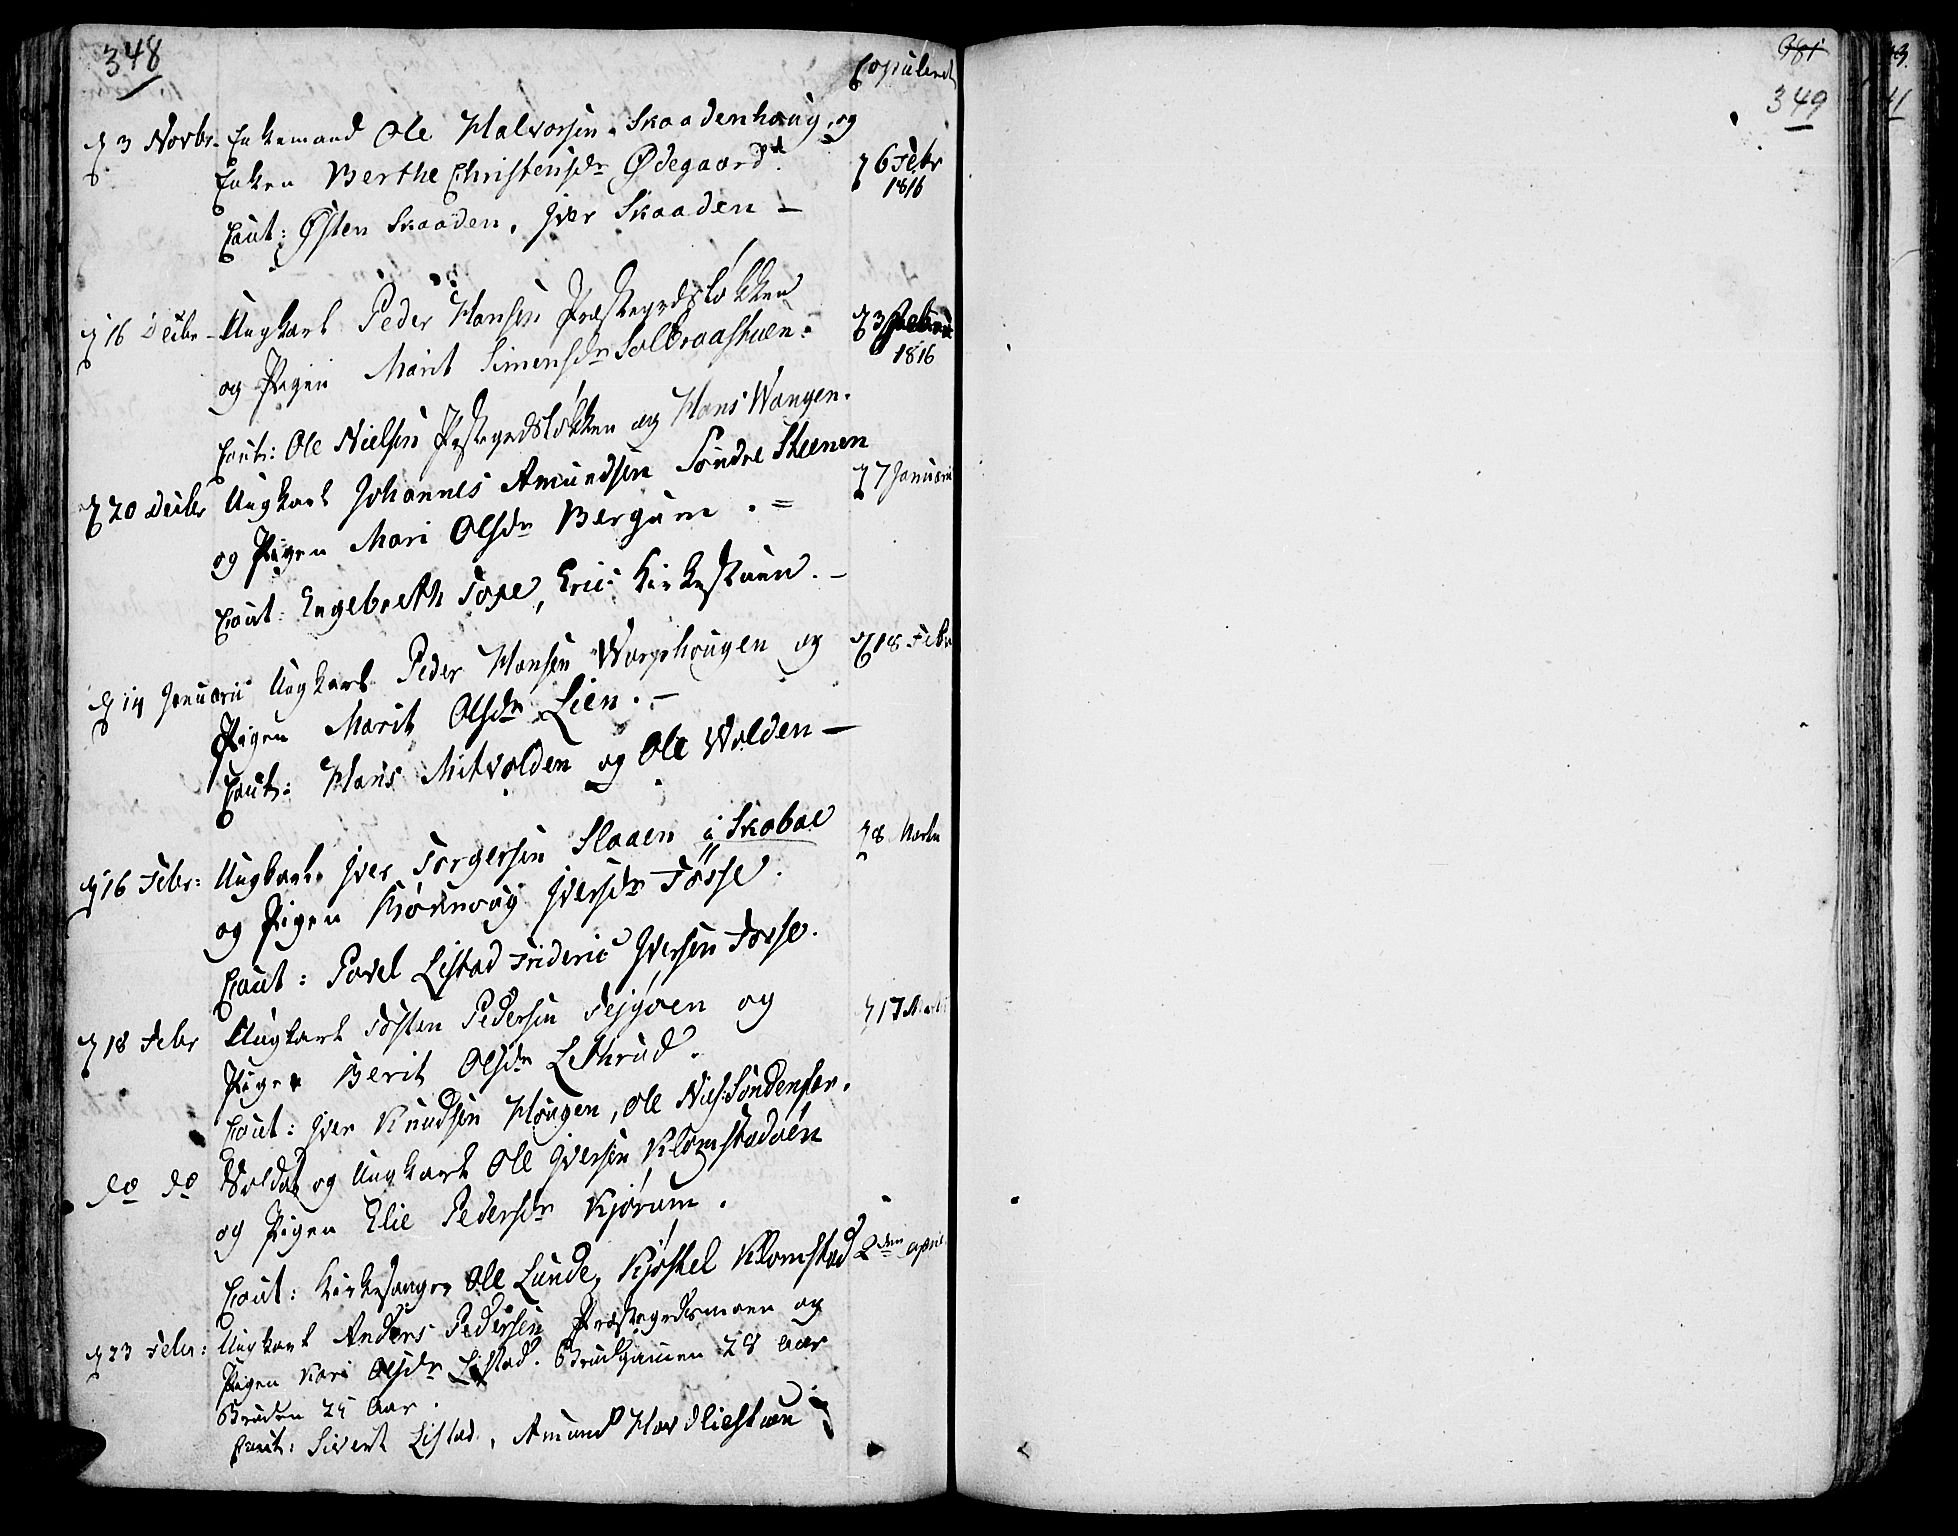 348
Copulerede
d 3 Novbr. Enkemand Ole Halvorsen Skaadenhaug, og
Enken Berthe Christensdr Ødegaard.
d 6 Febr
1816
Caut: Østen Skaaden, Iver Skaaden –
d 16 Decbr – Ungkarl Peder Hansen Præstegrdsløkken
og Pigen Marit Simensdr Solbraastuen.
1816
Caut: Ole Nielsen Præstegrdsløkken og Hans Wangen.
d 20 Decbr Ungkarl Johannes Amundsen Søndre Steenen
d 7 Januarii
og Pigen Mari Olsdr Bergum . =
Caut: Engebreth Toxe, Eric Kirkestuen. –
d 14 Januarii Ungkarl Peder Hansen Warphougen og
d 18 Febr
Pigen Marit Olsdr Lien. –
Caut: Hans Mitvolden og Ole Wolden –
d 16 Febr: Ungkarl Iver Torgersen Slaaen i Skaboe
d 8 Martii
og Pigen Rønnoug Iversdr Fosse.
Caut: Povel Listad Frideric Iversen Fosse.
d 18 Febr Ungkarl Tosten Pedersen og
d 17 Martii
Pigen Berit Olsdr Lethrud.
Caut: Iver Knudsen Hougen, Ole Niels: Søndenfor.
do do Soldat og Ungkarl Ole Iversen Klomstadøen
og Pigen Elie Pedersdr Kjørum.
Caut: Kirkesanger Ole Lunde, Kjøstel Klomstad
2den April
d 23 Febr: Ungkarl Anders Pedersen Præstegrdsmoen og
Pigen Kari Olsdr Listad. Brudgommen 28 Aar
Bruden 25 Aar.
Caut: Sivert Listad, Amund Hardliestuen
381
349